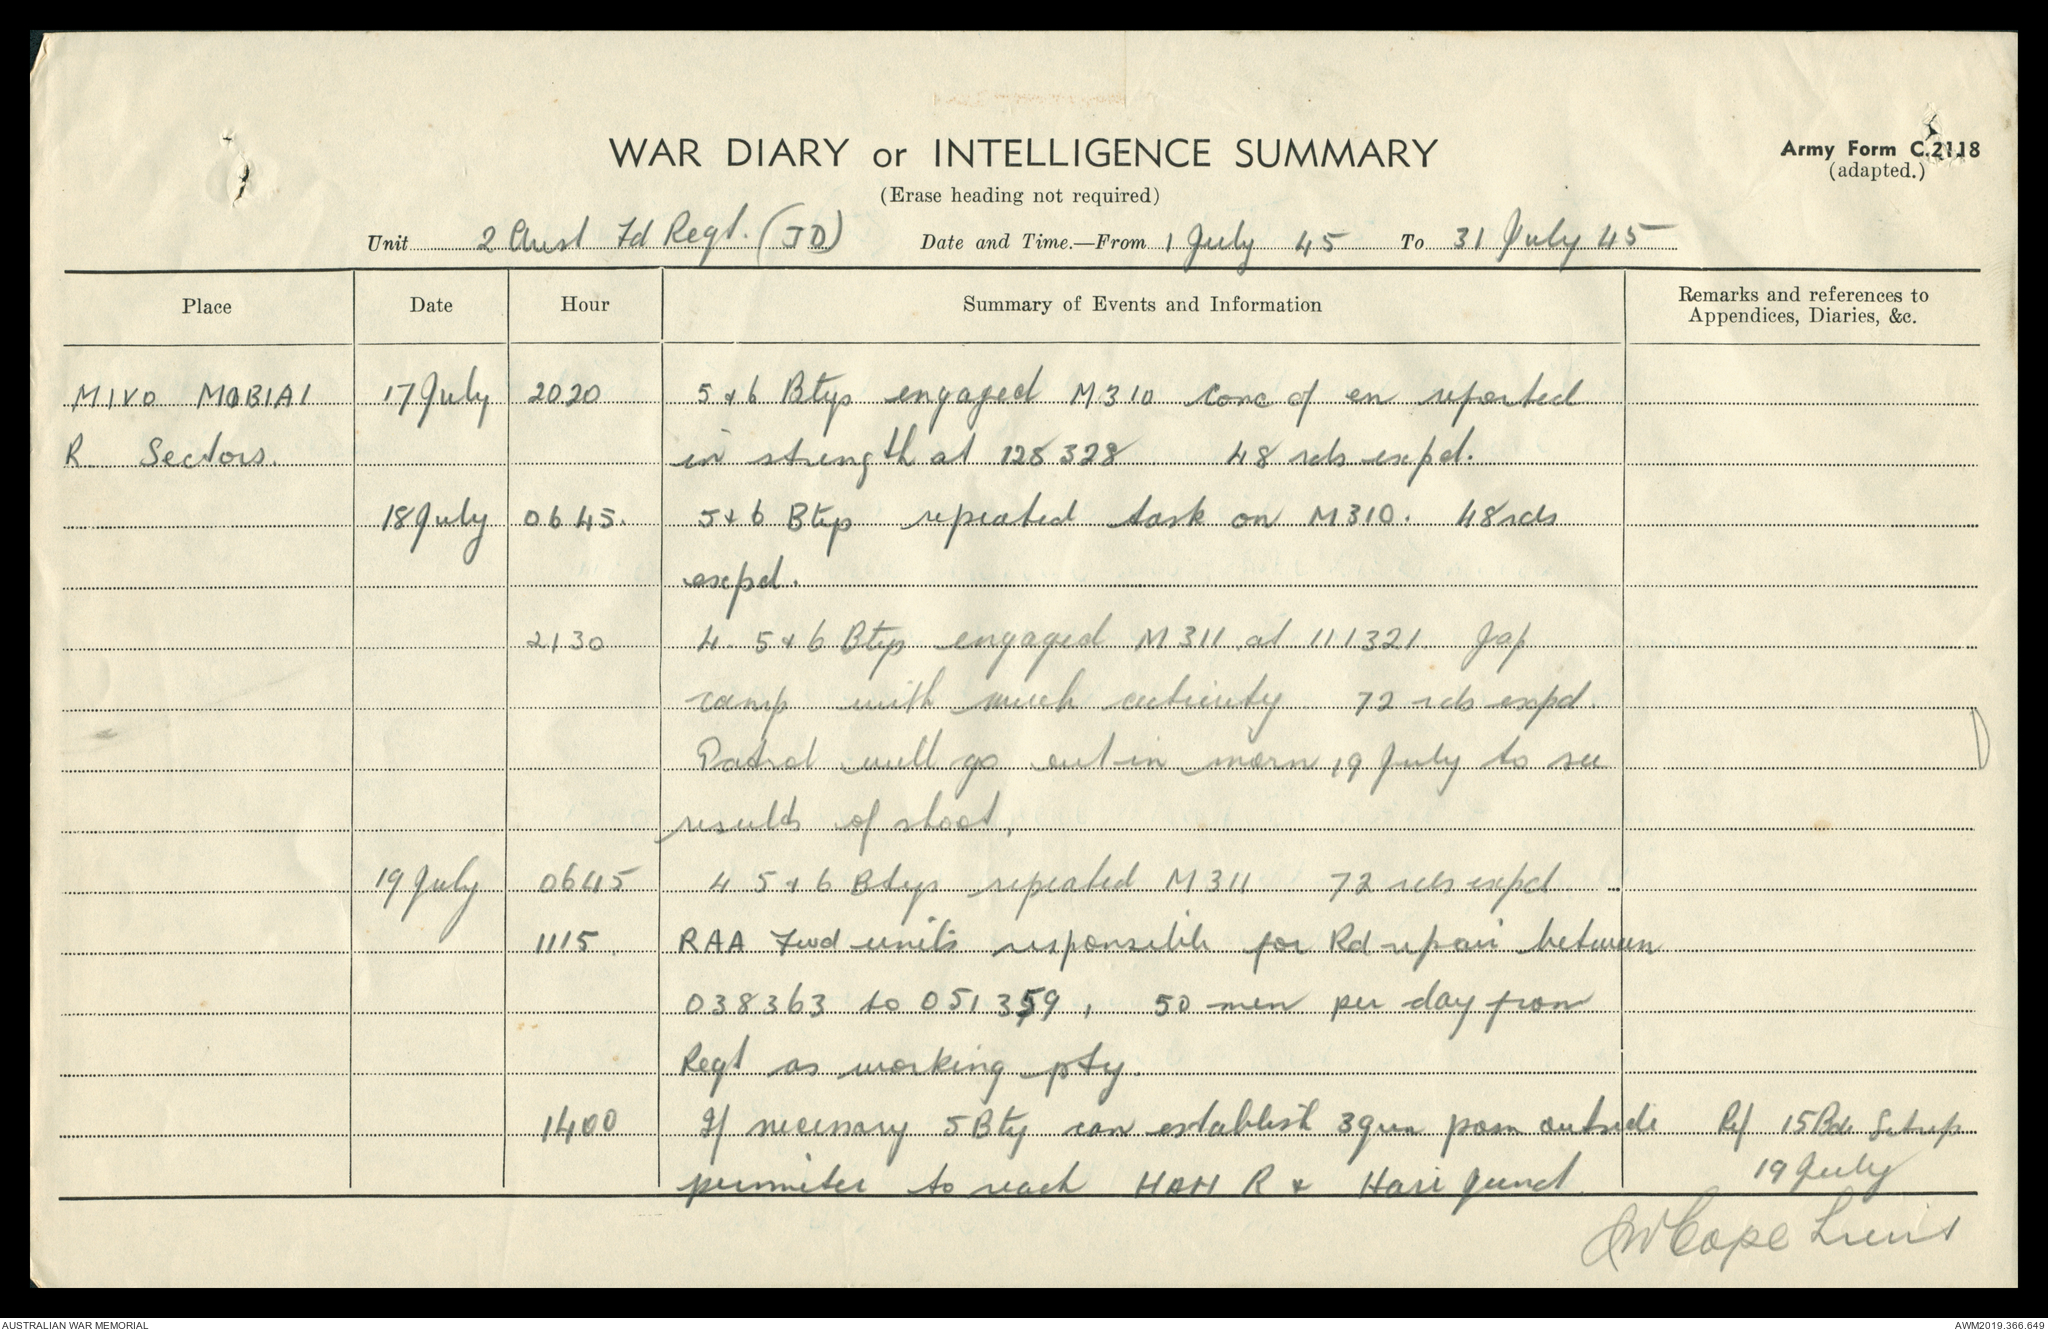 WAR DIARY or INTELLIGENCE SUMMARY
Army Form C.2118
(adapted.)
(Erase heading not required)
Unit 2 Aust Fd Regt. (JD) Date and Time.—From 1 July 45 To 31 July 45
Place Date Hour Summary of Events and Information Remarks and references to Appendices, Diaries, &c.
MIVO MOBIAI 17 July 2020 5 & 6 Btys engaged M310 conc of en reported
R. Sectors. in strength at 128328 48 rds expd.
18 July 0645. 5 & 6 Btys repeated task on M310. 48 rds
expd.
2130 4. 5 & 6 Btys engaged M311 at 111321. Jap
camp with much activity 72 rds expd.
Patrol will go out in morn 19 July to see
results of shoot.
19 July 0645 4 5 & 6 Btys repeated M311 72 rds expd
1115 RAA Fwd units responsible for Rd repair between
038363 to 051359, 50 men per day from
Regt as working pty.
1400 If necessary 5 Bty can establish 3 gun posn outside Ref 15 Bde Sitrep
perimeter to reach HARI R & Hari Junct 19 July
Cope Lieut
AUSTRALIAN WAR MEMORIAL
AWM2019.366.649